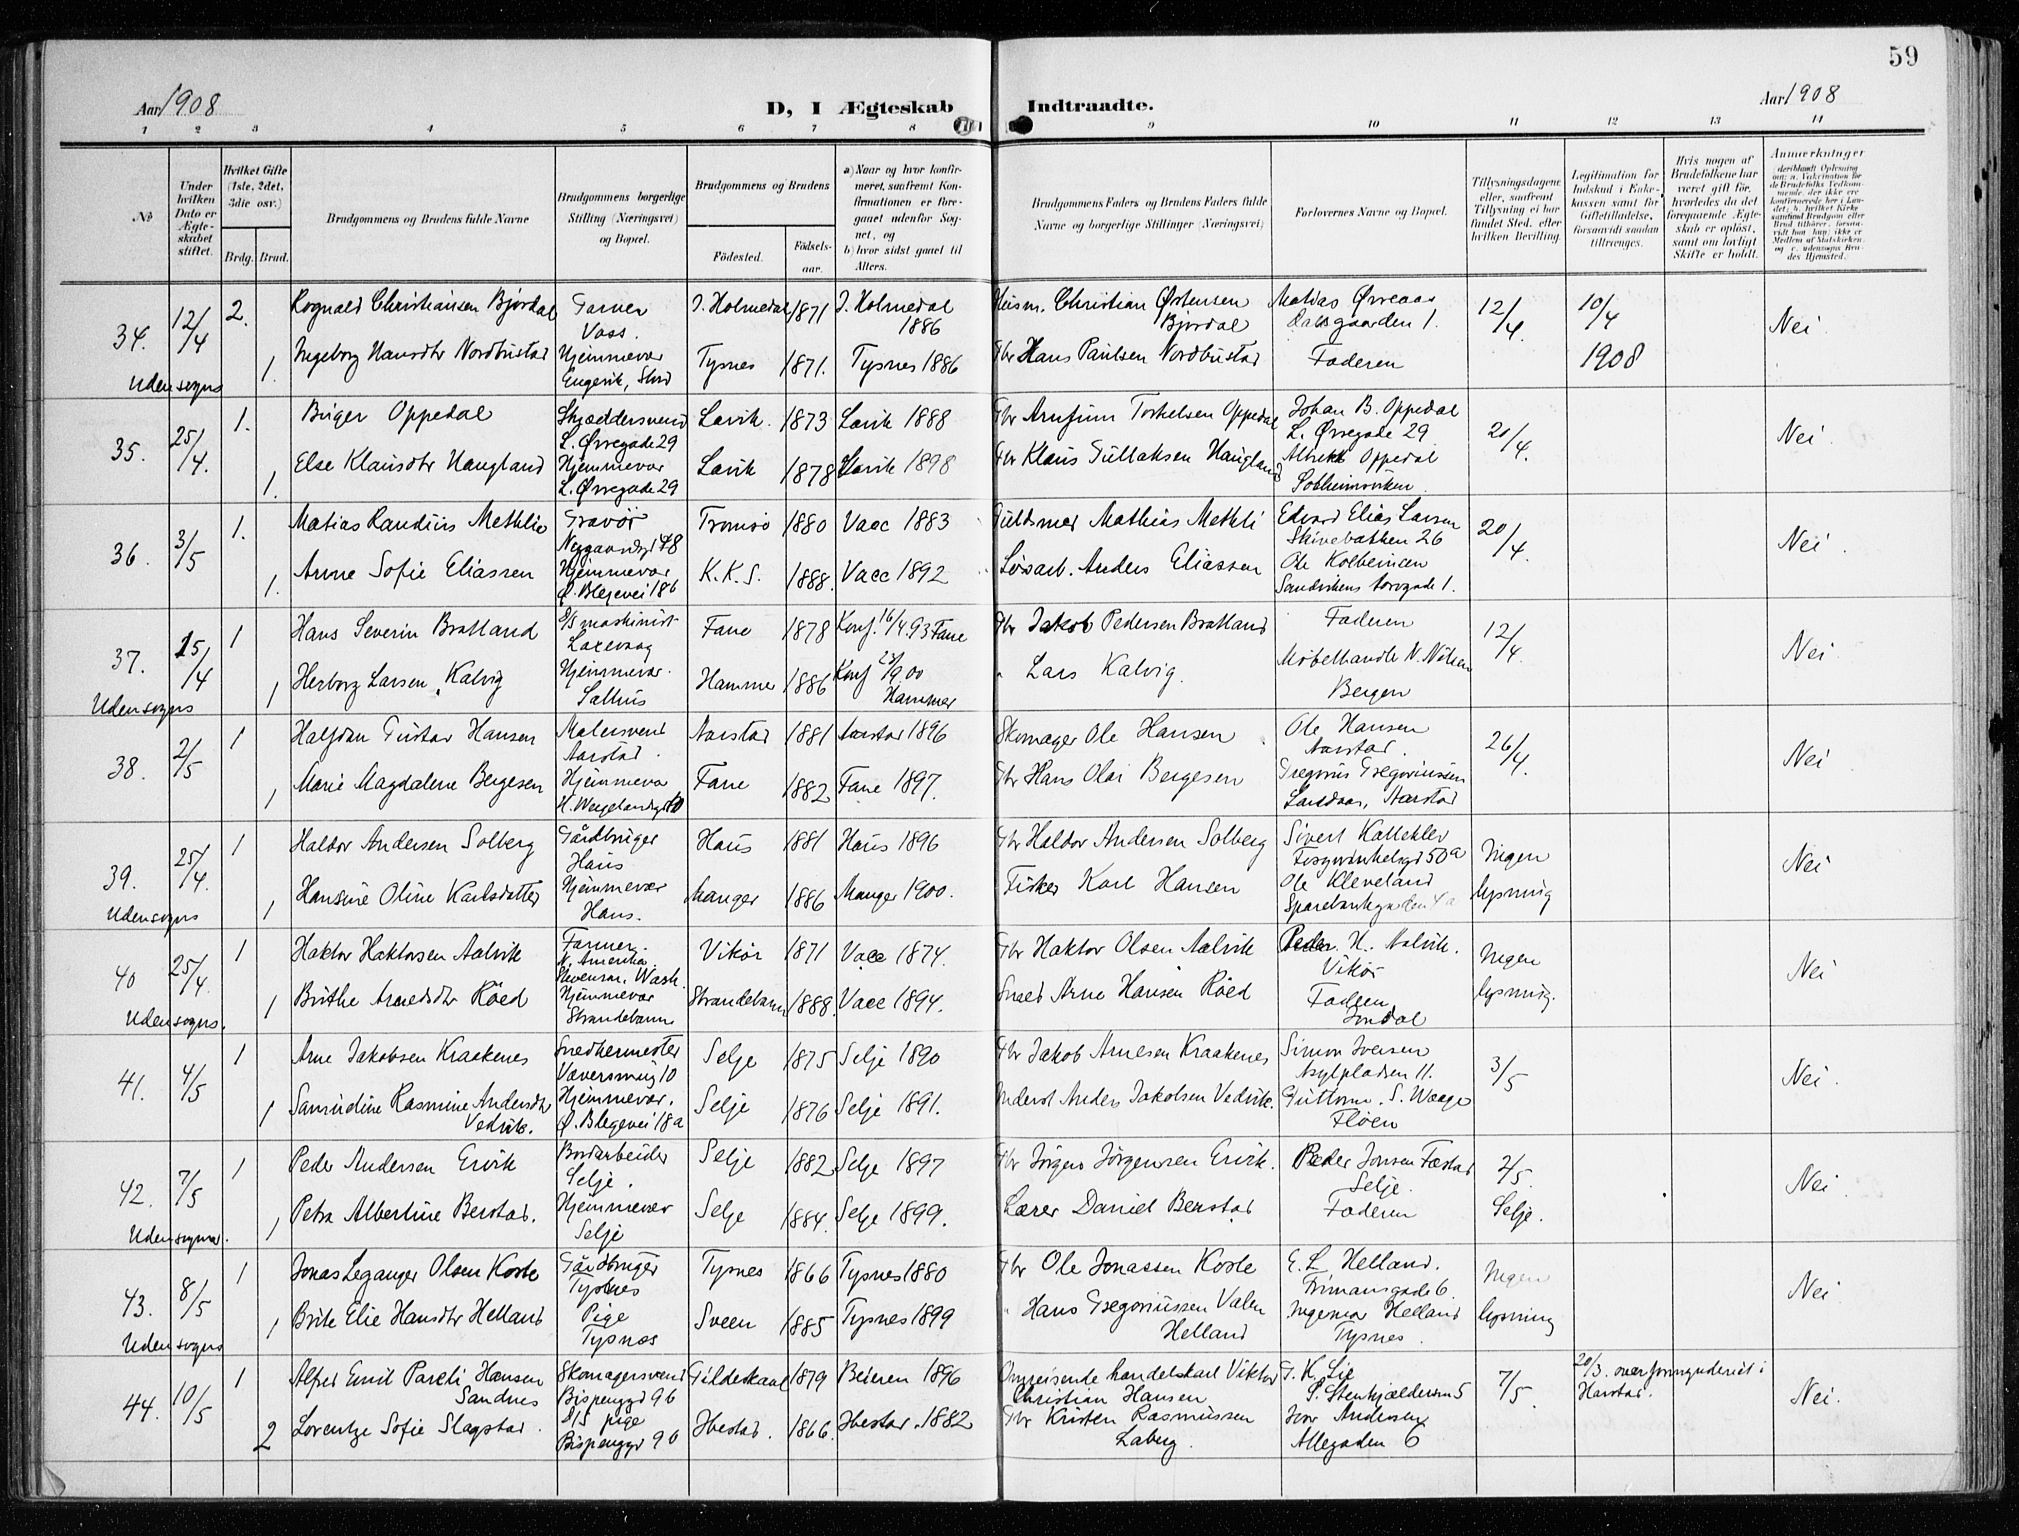 59
Aar 1908
D, I Ægteskab Indtraadte.
Aar 1908
1 2 3 4 5 6 7 8 9 10 11 12 13 14
No
Under hvilken Dato er Ægteskabet stiftet.
Hvilket Gifte (1ste, 2det, 3die osv.)
Brdg. Brud.
Brudgommens og Brudens fulde Navne
Brudgommens borgerlige Stilling (Næringsvei) og Bopæl.
Brudgommens og Brudens
Födested.
Födselsaar.
a) Naar og hvor konfirmeret, saafremt Konfirmationen er foregaaet udenfor Sognet, og
b) hvor sidst gaaet til Alters.
Brudgommens Faders og Brudens Faders fulde Navne og borgerlige Stillinger (Næringsvei)
Forlovernes Navne og Bopæl.
Tillysningsdagene eller, saafremt Tillysning ei har fundet Sted, efter hvilken Bevilling.
Legitimation for Indskud i Enkekassen samt for Giftetilladelse, forsaavidt saadan tiltrænges.
Hvis nogen af Brudefolkene har været gift før, hvorledes da det foregaaende Ægteskab er opløst, samt om lovligt Skifte er holdt.
Anmerkninger
34. 12/4 2. Rognald Christiansen Bjordal
Vass.
I. Holmedal 1871 I. Holmedal 1886
Husm. Christian Østensen Bjordal
12/4 10/4 1908 Nei.
1. Ingeborg Hansdtr Nordbustad
Hjemmevær
Tysnes 1871. Tysnes 1886
Gbr Hans Paulsen Nordbustad
Faderen
Udensogns
35. 25/4. 1. Birger Oppedal
Skræddersvend
L. Øvregade 29
Lavik. 1873 Lavik 1888
Johan B. Oppedal
L. Øvregade 29
20/4. Nei.
1. Else Klausdtr Haugland
Hjemmevær
L. Øvregade 29
Lavik 1878 Lavik 1898
Gbr Klaus Gullaksen Haugland
Albrikt Oppedal
Solheimsviken.
36. 3/5 1. Matias Randius Methlie
Gravør
Nygaardsgt 48
Tromsø 1880 Vacc 1883
Guldsmed Mathias Methli
Edvard Elias Larsen
Skivebakken 26
20/4. Nei.
1. Anne Sofie Eliassen
Hjemmevær
Ø. Blegevei 18b
K. K. S. 1888. Vacc 1892
Løsarb. Anders Eliassen
Sandvikens torvgade 1.
37. 15/4 1 Hans Severin Bratland
D/S maskinist
Laxevaag
Fane 1878 Konf. 16/4.93 Fane
Gbr Jakob Pedersen Bratland
Faderen
12/4 Nei
1 Herborg Larsen Kalvig
Hjemmevær.
Salhus
Hammer 1886 Konf 23/9.00 Hammer
" Lars Kalvig.
Møbelhandl. N. Nilsen
Bergen
Udensogns
38. 2/5 1 Halfdan Gustav Hansen
Malersvend
Aarstad.
Aarstad 1881 Aarstad 1896
Skomager Ole Hansen
Ole Hansen
Aarstad.
26/4. Nei
1 Marie Magdalene Bergesen
Hjemmevær
H. Wergelandsgt 10
Fane 1882 Fane 1897.
Gbr Hans Olai Bergesen
Gregorius Gregoriussen
Aarstad
39. 25/4. 1 Haldor Andersen Solberg
Gårdbruger
Haus
Haus 1881 Haus 1896
Gbr Haldor Andersen Solberg
Sivert
50a
Ingen lysning
Nei
1 Hansine Oline Karlsdatter
Hjemmevær
Haus.
Manger 1886 Manger 1900.
Fisker Karl Hansen
Ole Kleveland
Sparebankgaden 4a
Udensogns
40 25/4. 1 Haktor Haktorsen Aalvik
Farmer.
N. Amerika.
Wash.
Vikör 1871 Vacc 1874.
Gbr Haktor Olsen Aalvik
Peder H. Aalvik.
Vikör
Ingen lysning.
Nei
1 Brithe Arnedsdtr Röed
Hjemmevær
Strandebarm
Strandebarm 1888. Vacc 1894.
Arne Hansen Röed
Faderen
Jondal
Udensogns.
41. 4/5 1 Arne Jakobsen Kraakenes
Snedkermester
Væversmug 10
Selje 1875 Selje 1890
Gbr Jakob Arnesen Kraakenes
Simon Iversen
Asylpladsen 11.
3/5 Nei.
1 Samudine Rasmine Andersdtr Vedvik.
Hjemmevær.
Ø. Blegevei 18a
Selje 1876 Selje 1891.
Inderst Anders Jakobsen Vedvik.
Guttorm. S. Waage
Fløen
42. 7/5 1 Peder Andersen Ervik
Selje.
Selje 1882 Selje 1897
Gbr Jörgen Jörgensen Ervik.
Peder Jonsen
Selje.
2/5. Selje.
Nei
1 Petra Albertine Berstad.
Hjemmevær
Selje
Selje 1884. Selje 1899.
Lærer Daniel Berstad
Faderen
Udensogns.
43. 8/5 1 Jonas Leganger Olsen Koste
Gårdbruger
Tysnes
Tysnes 1866 Tysnes 1880
Gbr Ole Jonassen Koste
E. L. Helland.
6.
Ingen lysning
Nei
1 Brite Elie Hansdtr Helland
Pige
Tysnes
Sveen 1885 Tysnes 1899
" Hans Gregoriussen Valen Helland
Helland
Tysnes.
Udensogns
44. 10/5 1 Alfred Emil Pareli Hansen Sandnes
Skomagersvend
Bispenggd 9b
Gildeskaal 1879 Beieren 1896
Omreisende handelskarl Viktor Christian Hansen
T. K. Lie
S. Stenkjelderen 5
7/5. 20/3. overformynderiet i Harstad.
Nei.
2 Lorentze Sofie Slagstad.
pige
Bispenggd 9b
Ibestad. 1866. Ibestad. 1882
Gbr Kristen Rasmussen
Laberg.
Iver Andersen
Allegaden 6